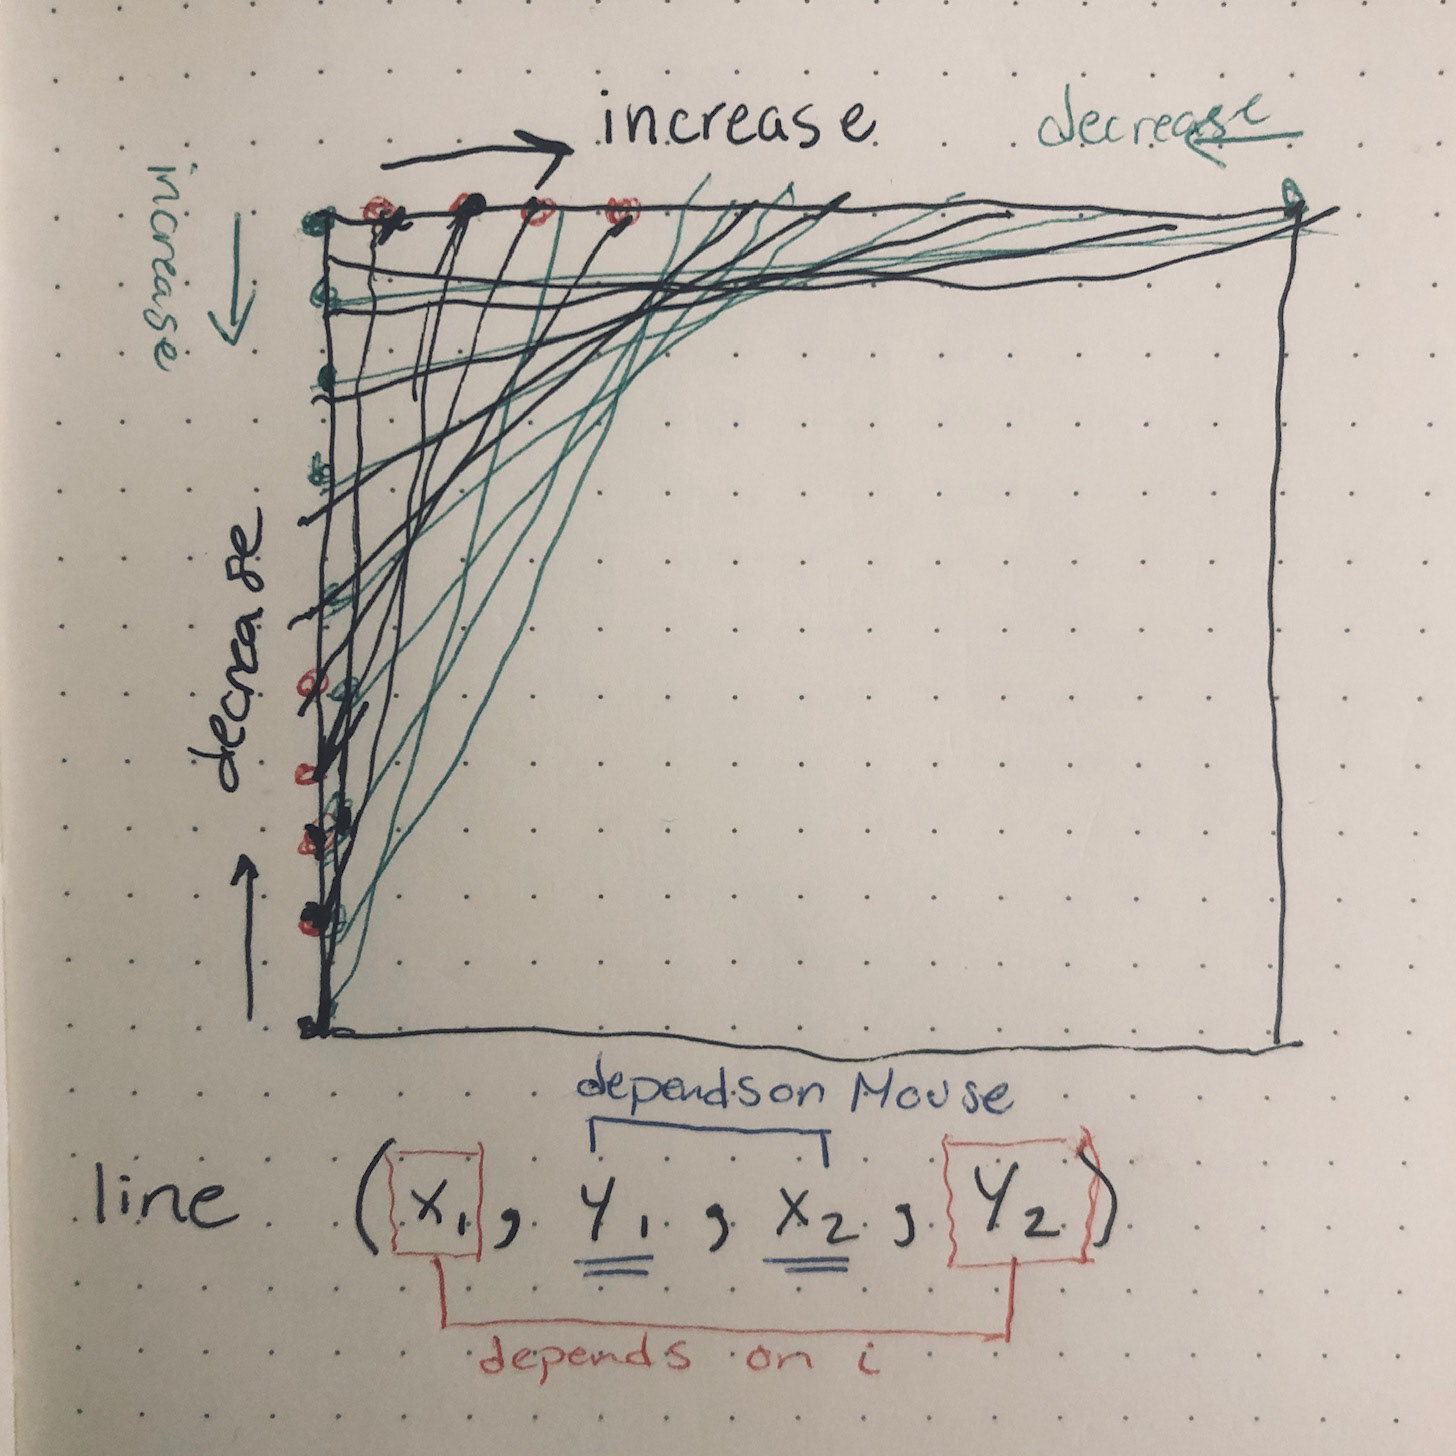 increase
decrease
increase
decrease
depends on Mouse
line (x₁, y₁, x₂, y₂)
depends on i